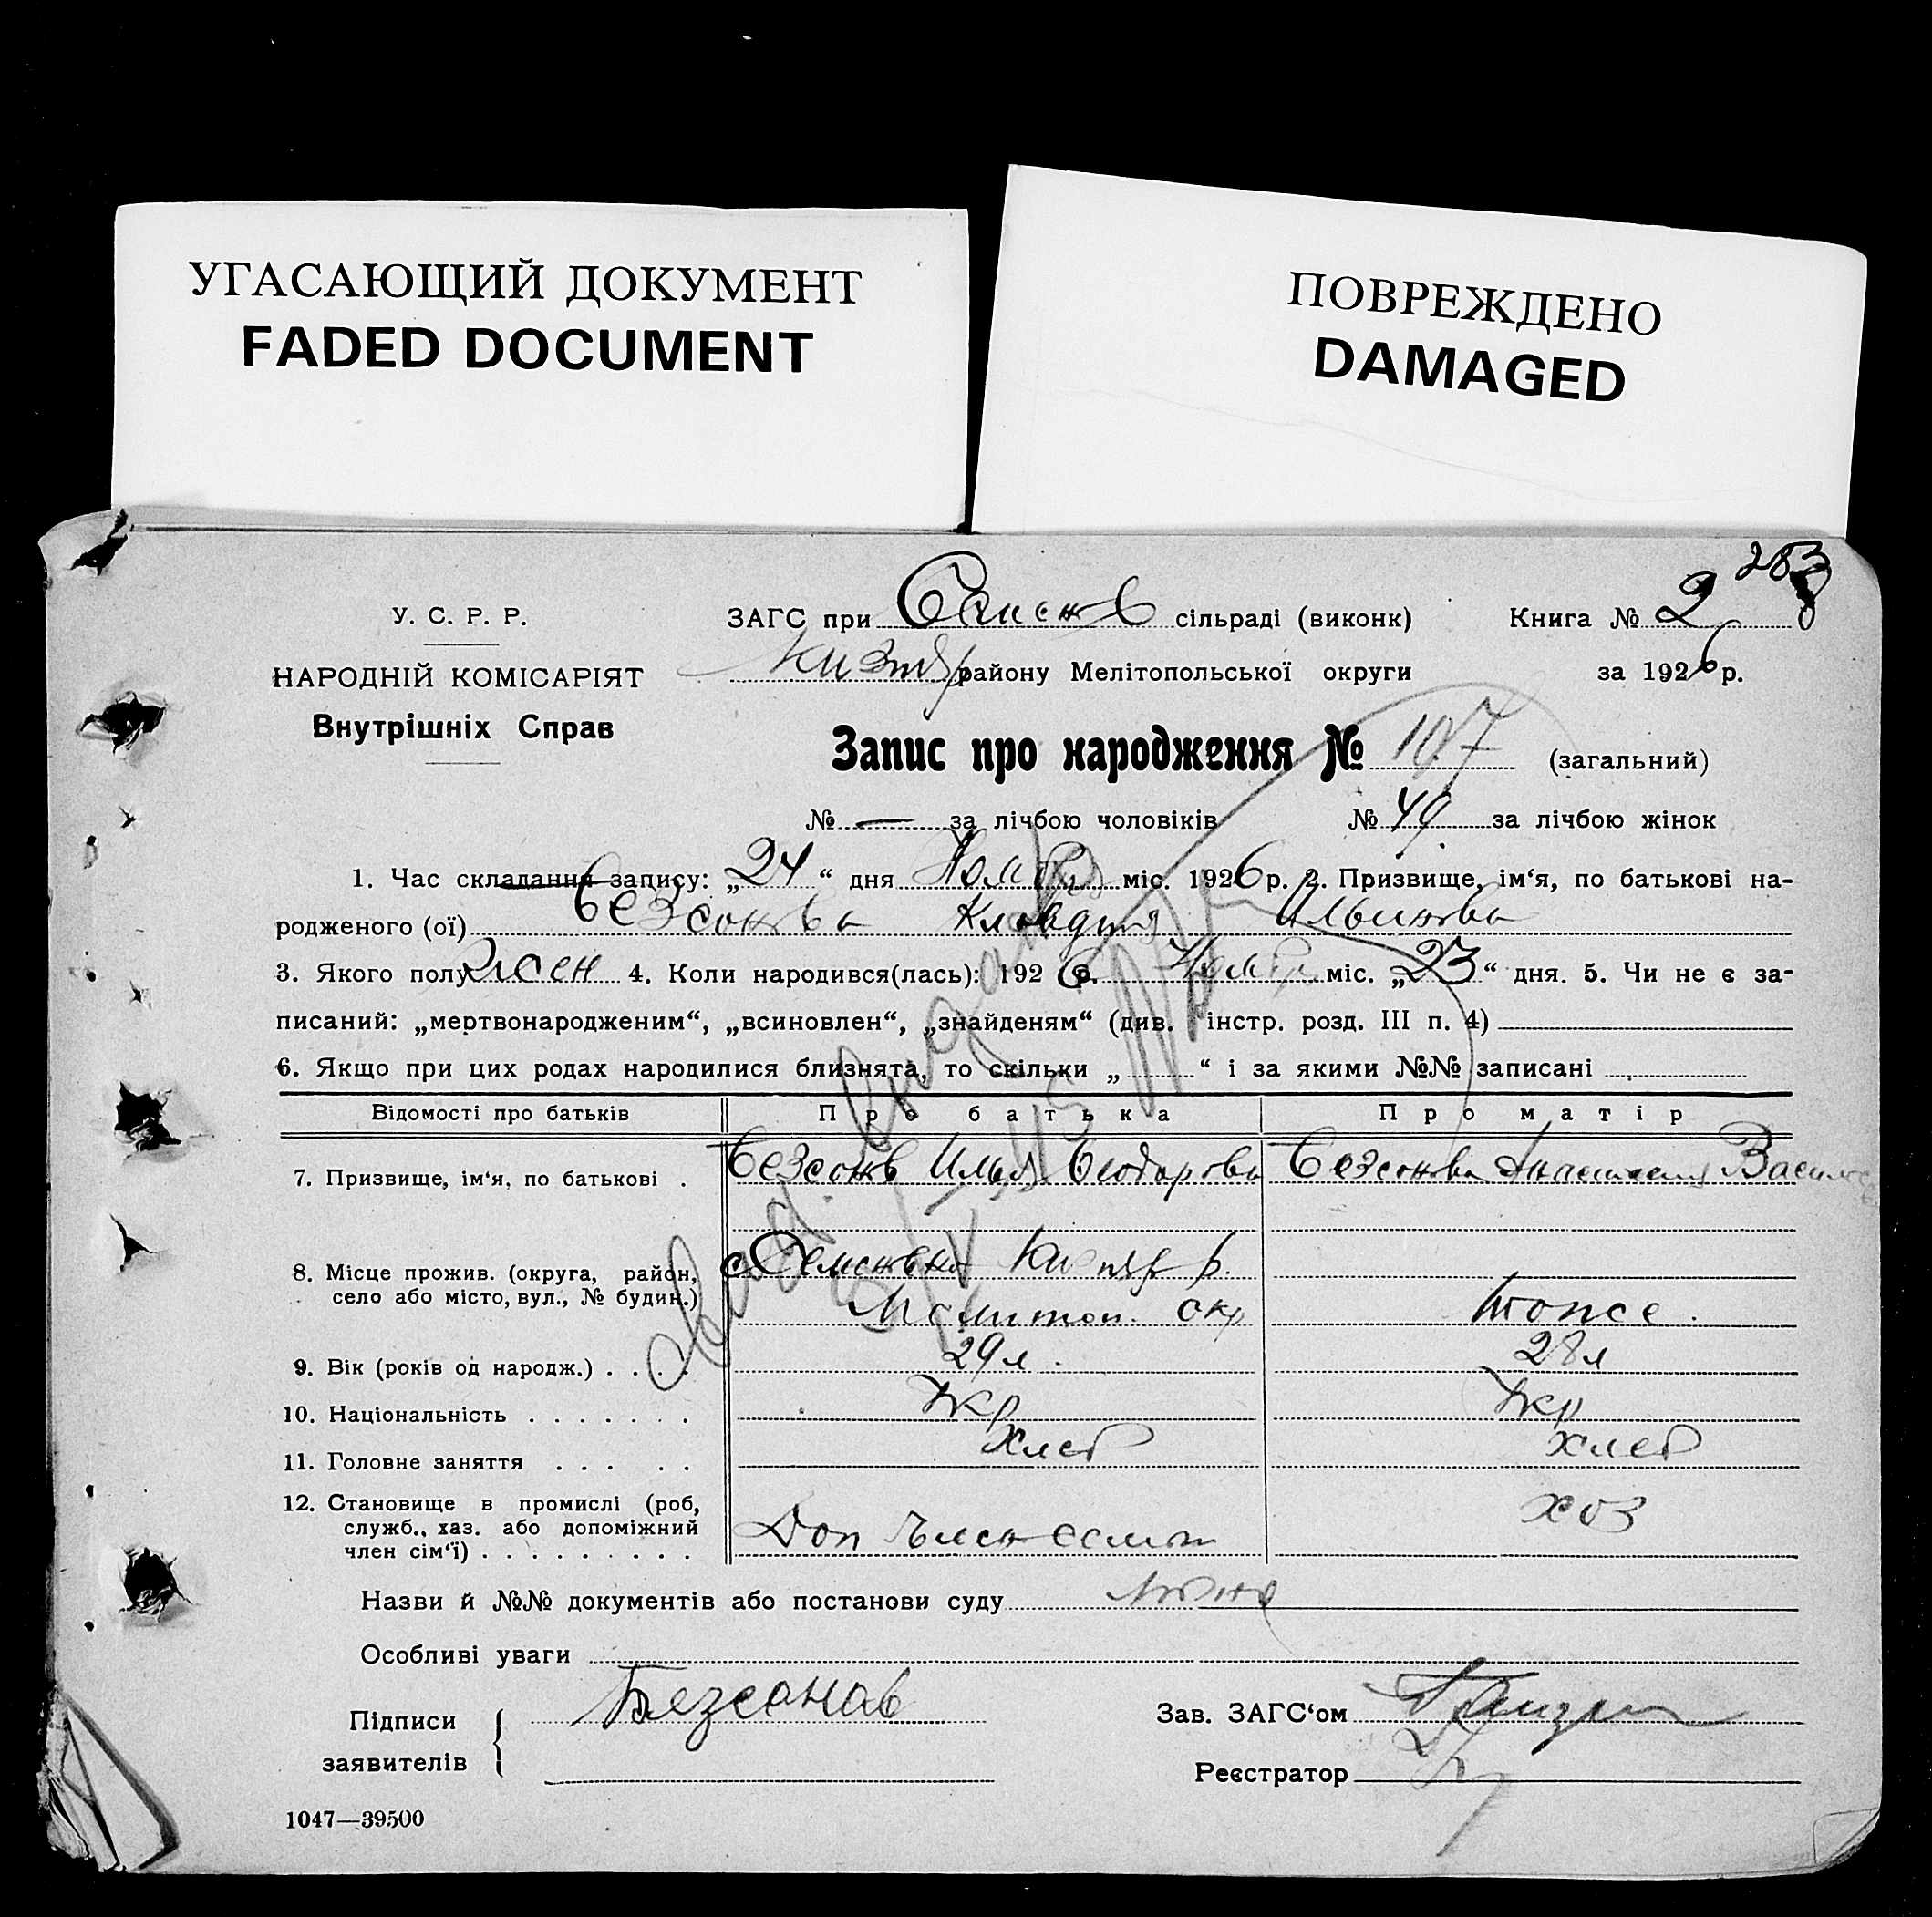 УГАСАЮЩИЙ ДОКУМЕНТ
FADED DOCUMENT
ПОВРЕЖДЕНО
DAMAGED
283
У. С. Р. Р.
ЗАГС при сільраді (виконк)
Книга № 2
НАРОДНІЙ КОМІСАРІЯТ
району Мелітопольської округи
за 1926 р.
Внутрішніх Справ
Запис про народження № 107 (загальний)
№ — за лічбою чоловіків № 49 за лічбою жінок
1. Час складання запису: „24“ дня міс. 1926 р. 2. Призвище, ім‘я, по батькові на-
родженого (ої) Безсонова Клавдия Ильинова
3. Якого полу жен 4. Коли народився(лась): 1926 р. міс. „23“ дня. 5. Чи не є за-
писаний: „мертвонародженим“, „всиновлен“, „знайденям“ (див. інстр. розд. III п. 4)
6. Якщо при цих родах народилися близнята, то скільки „ “ і за якими №№ записані
Відомості про батьків Про батька Про матір
7. Призвище, ім‘я, по батькові . Безсонов Илья Безсонова Анастасия
8. Місце прожив. (округа, район,
село або місто, вул., № будин.) Мелитоп. окр тоже.
9. Вік (років од народж.) . . . . 29 л. 28 л
10. Національність . . . . . . . Укр Укр
11. Головне заняття . . . . . Хлеб хлеб
12. Становище в промислі (роб,
служб., хаз. або допоміжний
член сім‘ї) . . . . . . . . . Доп хоз
Назви й №№ документів або постанови суду
Особливі уваги
Підписи Безсонов Зав. ЗАГС‘ом
заявителів Реєстратор
1047—39500